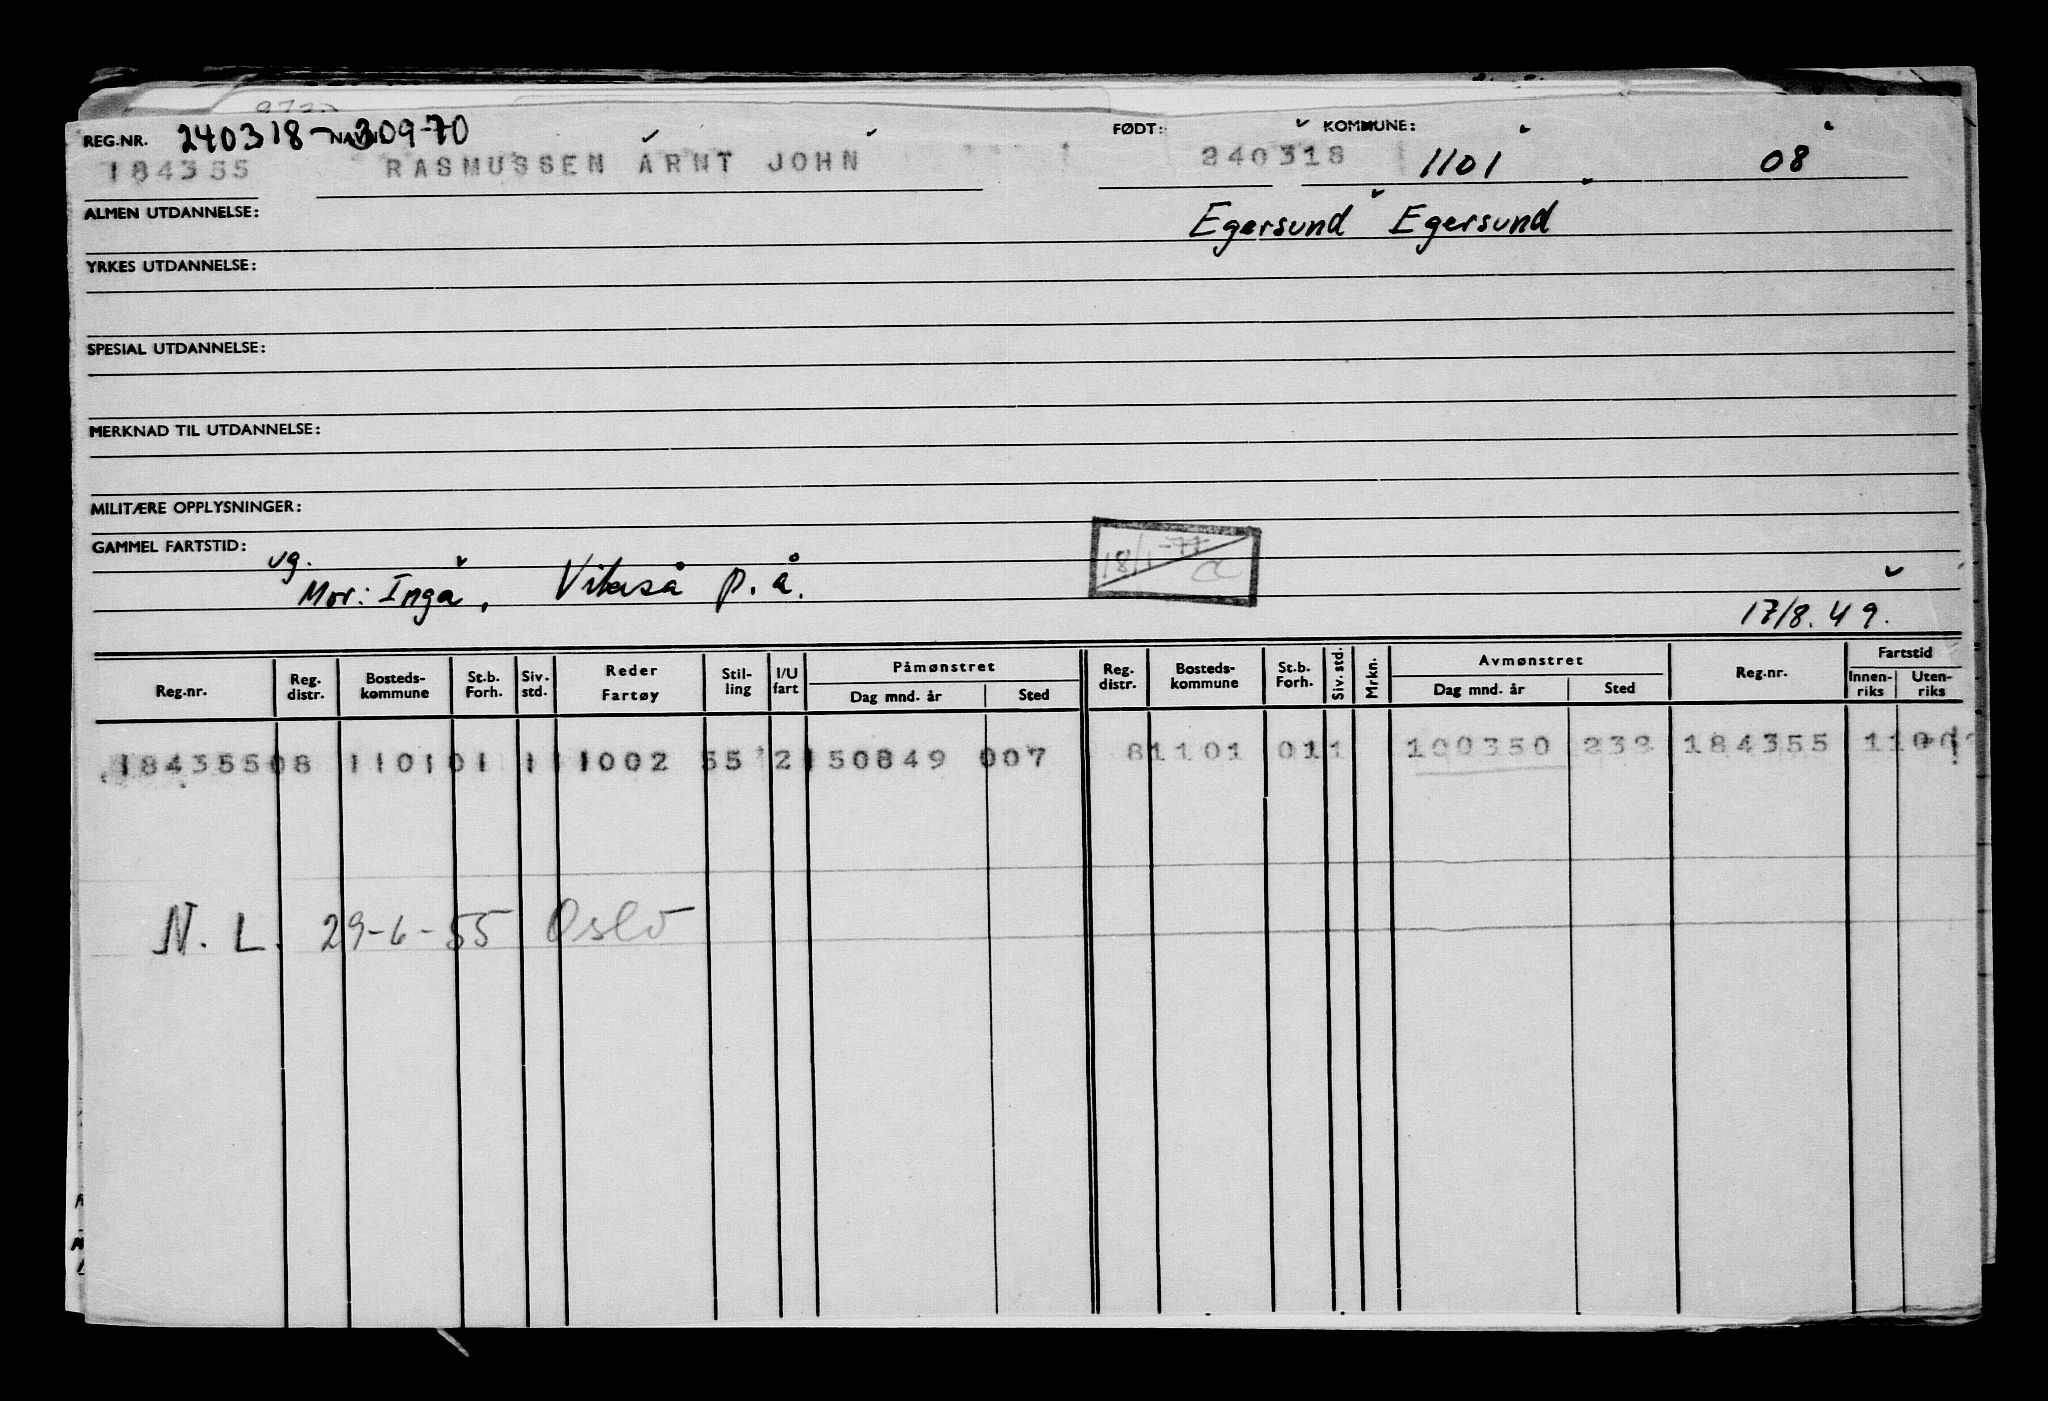 REG.NR. 240318-30970 NAVN FØDT: KOMMUNE:
184355 RASMUSSEN ARNT JOHN 240318 1101 08
ALMEN UTDANNELSE: Egersund Egersund
YRKES UTDANNELSE:
SPESIAL UTDANNELSE:
MERKNAD TIL UTDANNELSE:
MILITÆRE OPPLYSNINGER:
GAMMEL FARTSTID:
vg.
18/1-77
Mor: Inga, p. å.
17/8.49.
Reg.nr. Reg. distr. Bosteds-kommune St.b. Forh. Siv. std. Reder Fartøy Stil-ling I/U fart Påmønstret Dag mnd. år Sted Reg. distr. Bosteds-kommune St.b. Forh. Siv. std. Mrkn. Avmønstret Dag mnd. år Sted Reg.nr. Fartstid Innen-riks Uten-riks
184355 08 1101 01 1 1002 55 2 150849 007 8 1101 01 1 100350 232 184355
N. L. 29-6-55 Oslo